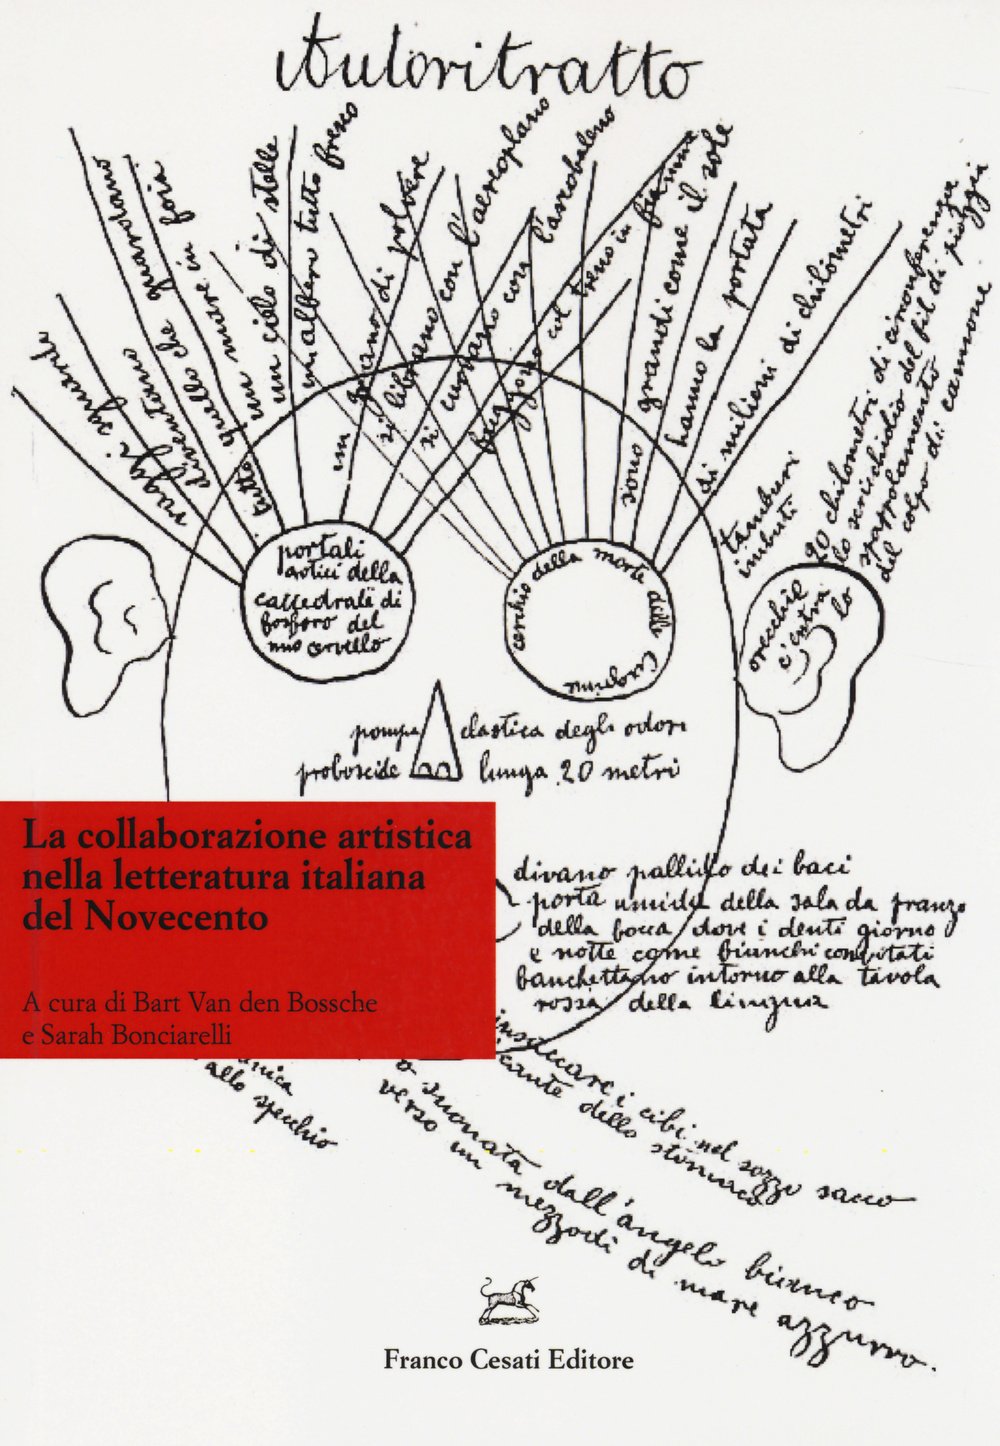 Autoritratto
raggi sguardi
diventano
quello che guardano
tutto
un mare in foia
un cielo di stelle
un affare tutto fresco
un grano di polvere
si librano con l'aereoplano
si curvano con l'arcobaleno
fuggono col treno in fiamma
sono grandi come il sole
hanno la portata
di milioni di chilometri
tamburi
imbuti
20 chilometri di circonferenza
lo scrischiolio del fil di pioggia
spappolamento
del colpo di cannone
portali
ottici della
cattedrale di
fosforo del
mio cervello
cerchio della morte delle
orecchie
c'entra
lo
pompa elastica degli odori
proboscide lunga 20 metri
La collaborazione artistica
nella letteratura italiana
del Novecento
A cura di Bart Van den Bossche
e Sarah Bonciarelli
divano pallido dei baci
porta umida della sala da pranzo
della bocca dove i denti giorno
e notte come bianchi convitati
banchettano intorno alla tavola
rossa della lingua
insaccare i cibi nel sozzo sacco
dello stomaco
allo specchio
o suonata dall'angelo bianco
verso un mezzodì di mare azzurro.
Franco Cesati Editore